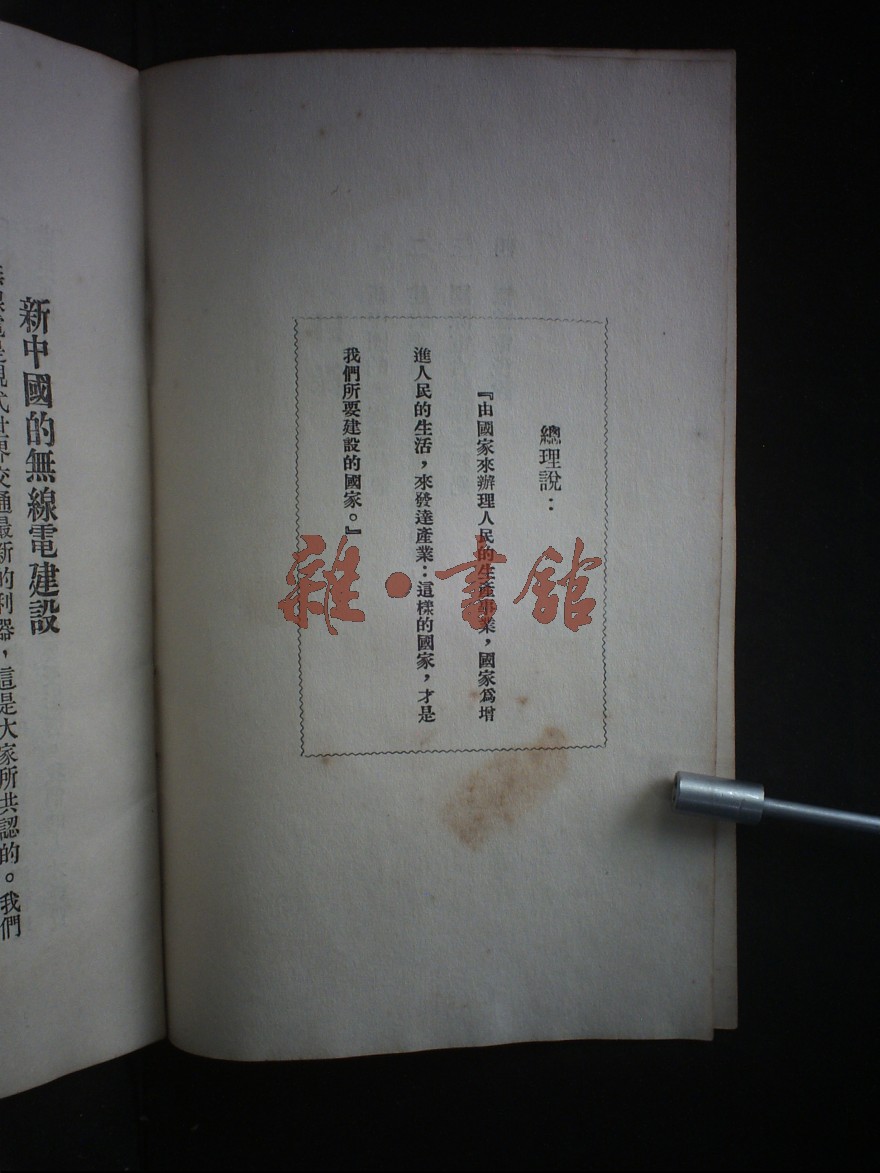 總理說：
『由國家來辦理人民的生產事業，國家爲增
進人民的生活，來發達產業：這樣的國家，才是
我們所要建設的國家。』
新中國的無線電建設
無線電是現式世界交通最新的利器，這是大家所共認的。我們
雜·書館